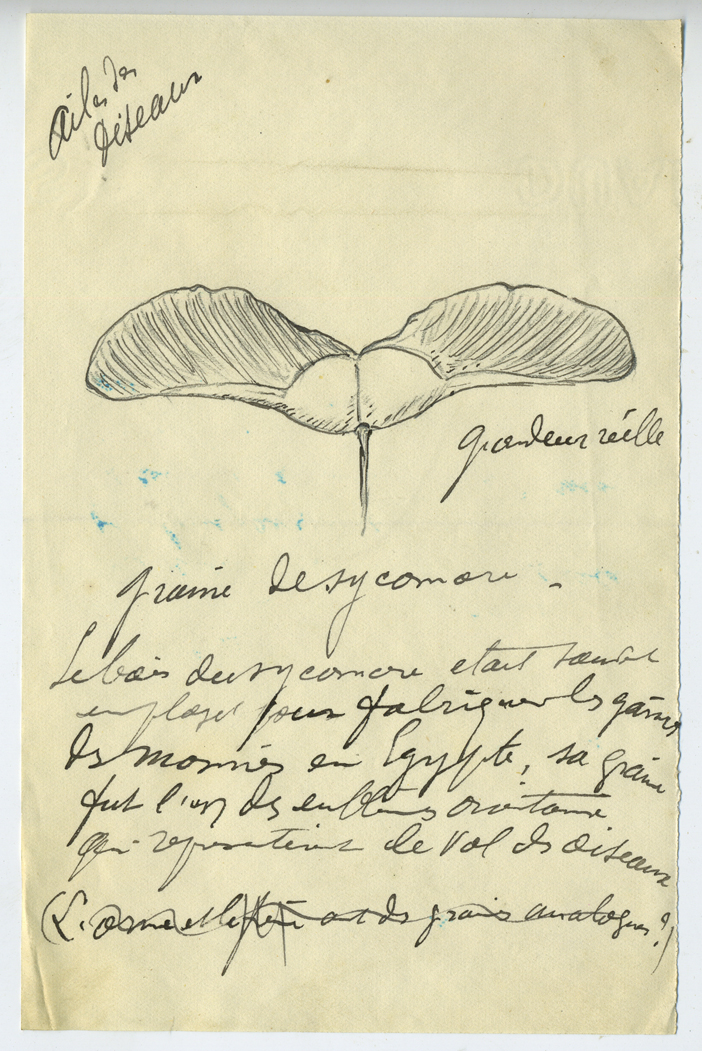 Ailes des
Oiseaux
grandeur réelle
graine de sycomore -
Le bois du sycomore etait souvent
employé pour fabriquer les gaines
des momies en Egypte, sa graine
fut l'un des emblèmes
qui representerent le vol des oiseaux
(L'orme et le frêne ont des graines analogues?)